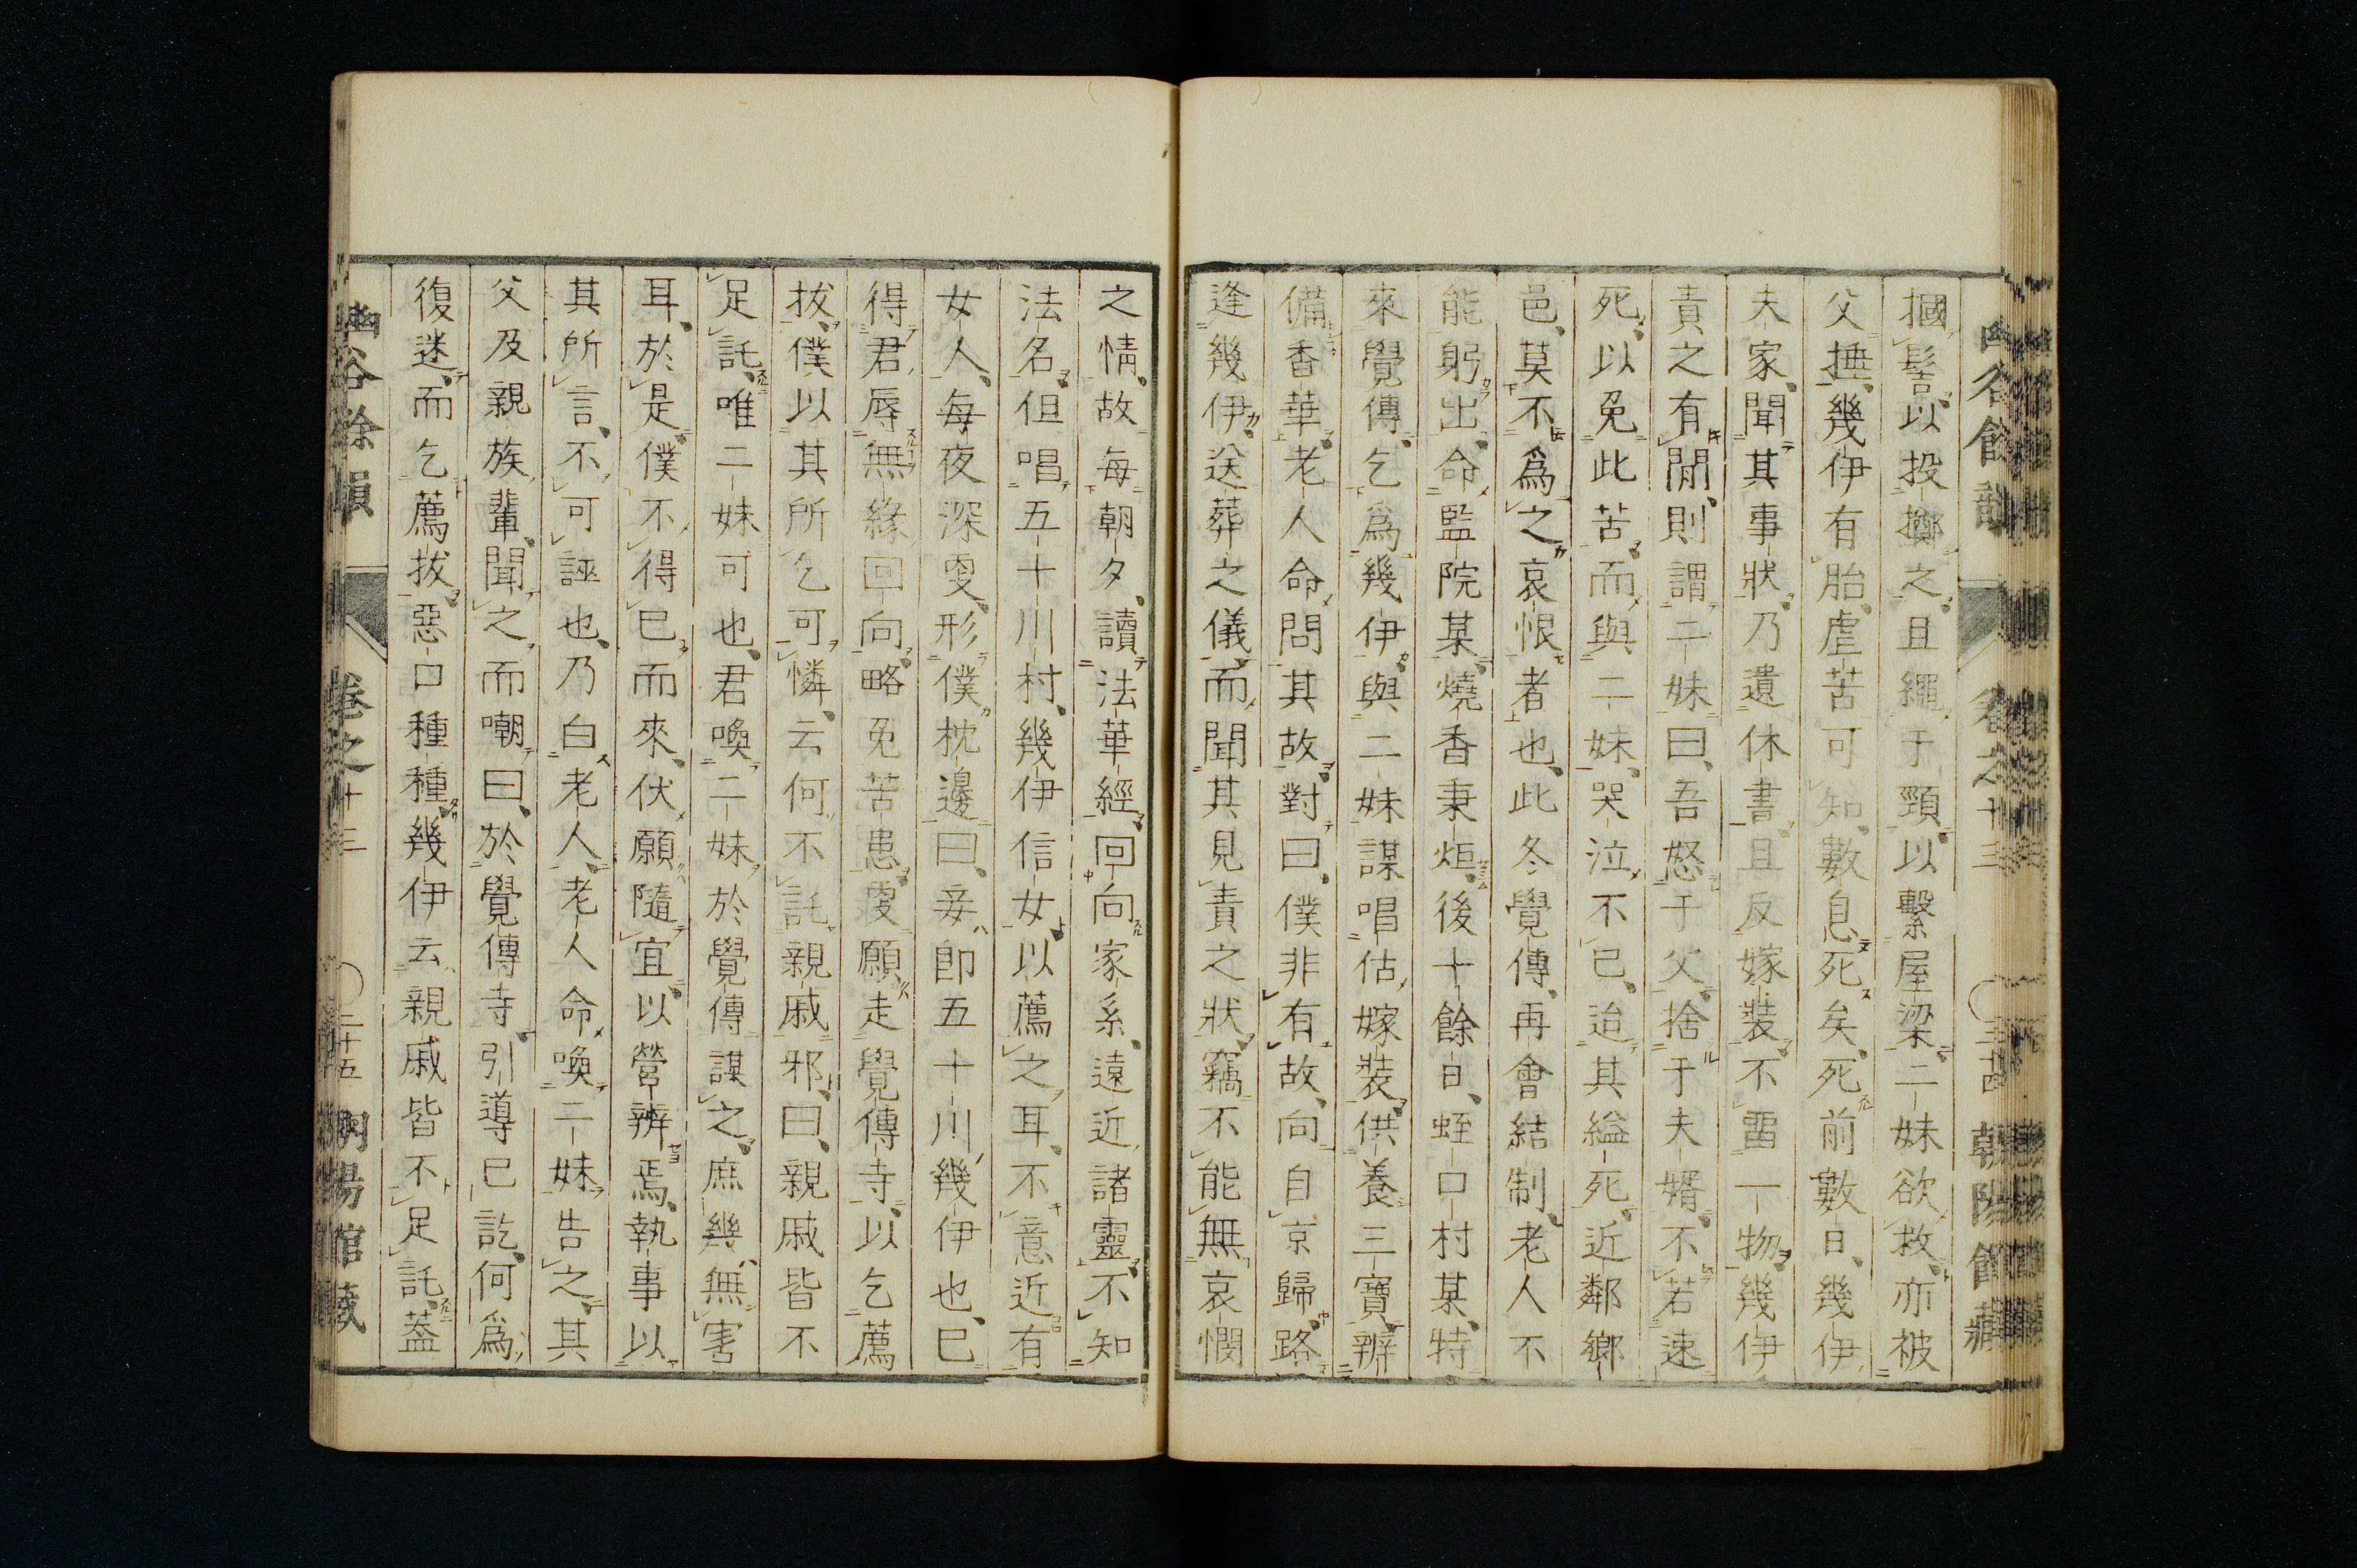 摑髻、以投擲之、且繩于頸、以繫屋梁、二妹欲救、亦被
父捶、幾伊有胎、虐苦可知、數息死矣、死前數日、幾伊
夫家、聞其事狀、乃遺休書、且反嫁裝、不留一物、幾伊
責之有間、則謂二妹曰、吾怒于父、捨于夫婿、不若速
死、以免此苦、而與二妹、哭泣不已、迨其縊死、近鄰鄉
邑、莫不爲之哀恨者也、此冬覺傳、再會結制、老人不
能躬出、命監院某、燒香秉炬、後十餘日、蛭口村某、特
來覺傳、乞爲幾伊、與二妹謀、唱估嫁裝、供養三寶、辨
備香華、老人命問其故、對曰、僕非有故、向自京歸路、
逢幾伊送葬之儀、而聞其見責之狀、竊不能無哀憫
之情、故每朝夕、讀法華經、回向家系、遠近諸靈、不知
法名、但唱五十川村、幾伊信女、以薦之耳、不意近有
女人、每夜深更、形僕枕邊曰、妾即五十川幾伊也、已
得君辱無緣回向、略免苦患、更願走覺傳寺、以乞薦
拔、僕以其所乞可憐、云何不託親戚邪、曰、親戚皆不
足託、唯二妹可也、君喚二妹、於覺傳謀之、庶幾無害
耳、於是僕不得已而來、伏願隨宜、以營辨焉、執事以
其所言、不可誣也、乃白老人、老人命喚二妹告之、其
父及親族輩、聞之而嘲曰、於覺傳寺、引導已訖、何爲
復迷、而乞薦拔、惡口種種、幾伊云、親戚皆不足託、蓋
幽谷餘韻 卷之十三 ○二十五 朝陽館藏